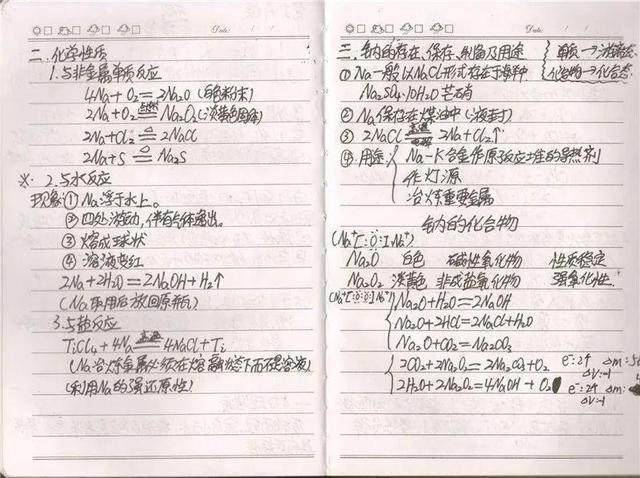 Date: / /
二. 化学性质
1. 与非金属单质反应
4Na+O₂=2Na₂O (白色粉末)
2Na+O₂ 点燃= Na₂O₂ (淡黄色固体)
2Na+Cl₂ △= 2NaCl
2Na+S △= Na₂S
※ 2. 与水反应
现象① Na浮于水上。
② 四处游动,伴有气体逸出。
③ 熔成球状
④ 溶液变红
2Na+2H₂O=2NaOH+H₂↑
(Na取用后放回原瓶)
3. 与盐反应
TiCl₄+4Na 高温= 4NaCl+Ti
(Na冶炼金属必须在熔融状态下而不是溶液)
(利用Na的强还原性)
Date: / /
三. 钠的存在、保存、制备及用途 { 单质→游离态
化合物→化合态
① Na一般以NaCl形式存在于海洋中
Na₂SO₄·10H₂O 芒硝
② Na保存在煤油中(液封)
③ 2NaCl = 2Na+Cl₂↑
④ 用途 { Na-K合金作原子反应堆的导热剂
作灯源
冶炼重要金属
钠的化合物
(Na⁺[:Ö:]Na⁺)
Na₂O 白色 碱性氧化物 性质稳定
Na₂O₂ 淡黄色 非成盐氧化物 强氧化性.
(Na⁺[:Ö:Ö:]Na⁺)
{ Na₂O+H₂O=2NaOH
Na₂O+2HCl=2NaCl+H₂O
Na₂O+CO₂=Na₂CO₃
{ 2CO₂+2Na₂O₂=2Na₂CO₃+O₂ e⁻:2↑ Δm:56
ΔV:-1
2H₂O+2Na₂O₂=4NaOH+O₂ e⁻:2↑ Δm:4
ΔV:-1